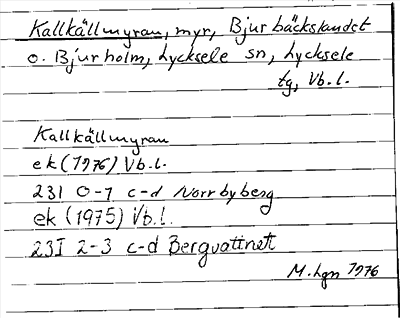 Kallkällmyran, myr, Bjurbäckslandet
o. Bjurholm, Lycksele sn, Lycksele
tg, Vb.l.
Kallkällmyran
ek (1976) Vb.l.
23I 0-1 c-d Norrbyberg
ek (1975) Vb.l.
23I 2-3 c-d Bergvattnet
M.Lgn 1976